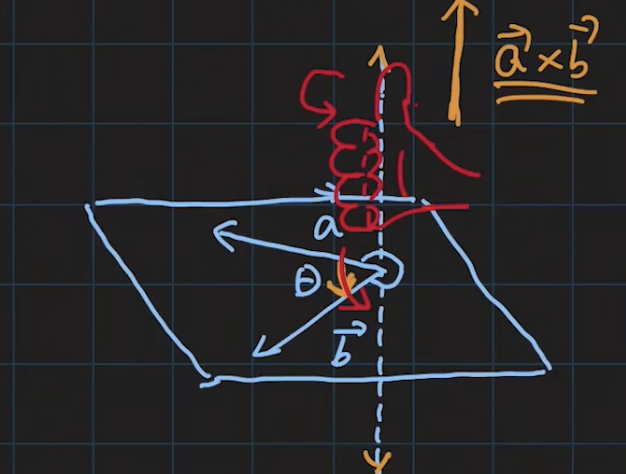 a⃗ × b⃗
a⃗
θ
b⃗